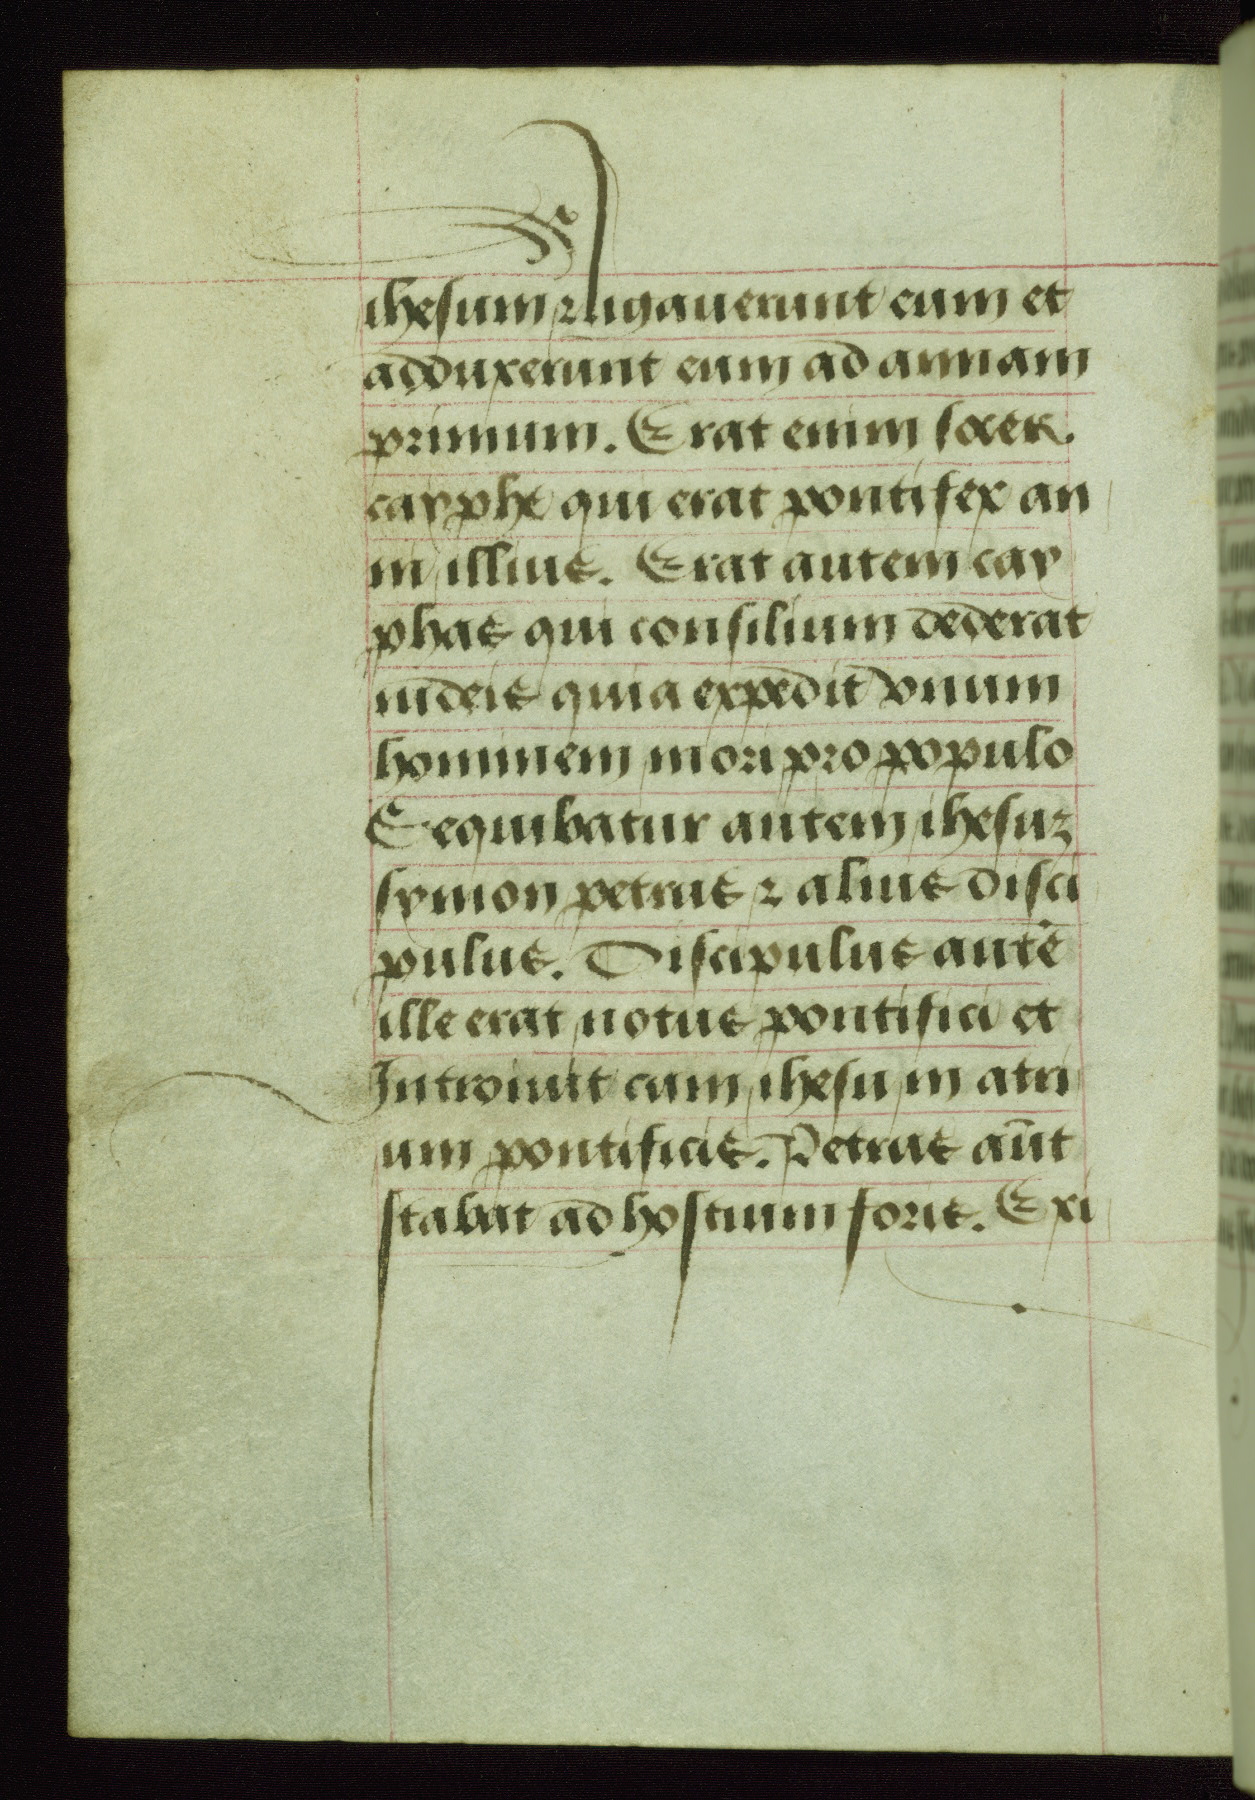 ihesum ⁊ ligauerunt eum et
adduxerunt eum ad annam
primum. Erat enim socer
cayphe qui erat pontifex an
ni illius. Erat autem cay
phas qui consilium dederat
iudeis quia expedit vnum
hominem mori pro populo
Sequibatur autem ihesuz
symon petrus ⁊ alius disci
pulus. Discipulus autē
ille erat notus pontifici et
Introiuit cum ihesu in atri
um pontificis. Petrus aūt
stabat ad hostium foris. Exi